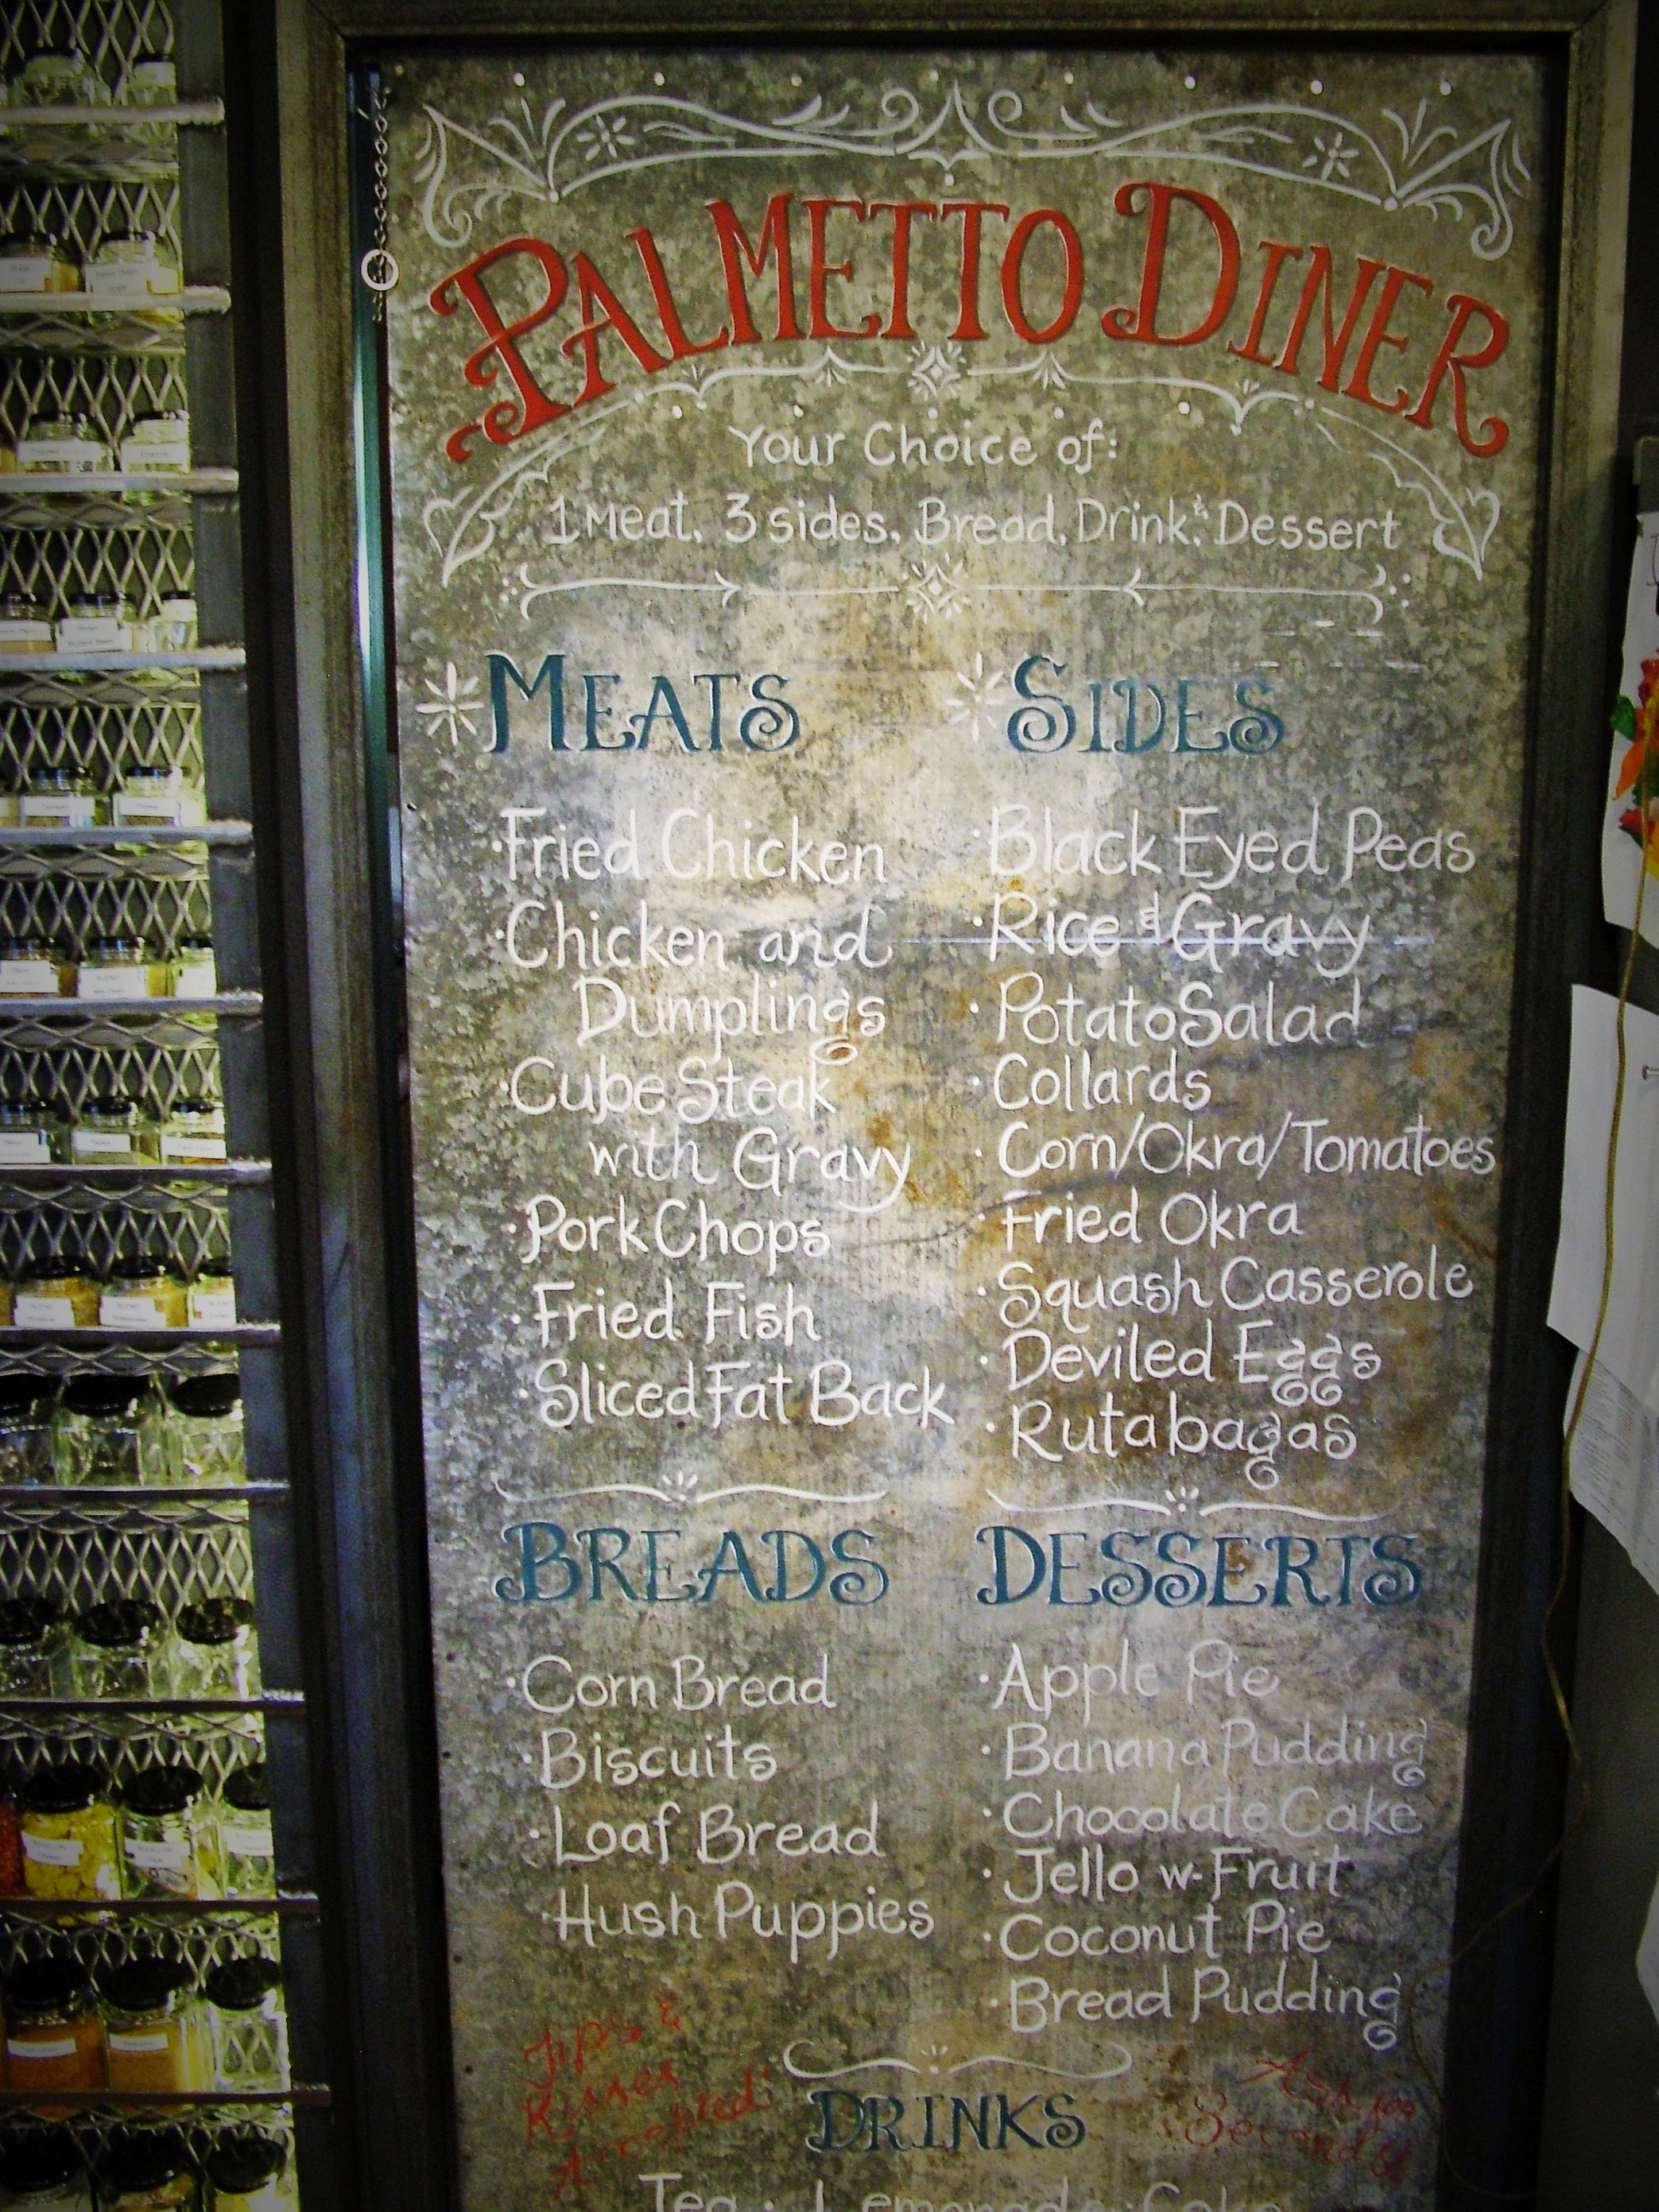 PALMETTO DINER
Your Choice of:
1 Meat, 3 sides, Bread, Drink, & Dessert
MEATS
· Fried Chicken
· Chicken and
Dumplings
· Cube Steak
with Gravy
· Pork Chops
· Fried Fish
· Sliced Fat Back
SIDES
· Black Eyed Peas
· Rice & Gravy
· Potato Salad
· Collards
· Corn/Okra/Tomatoes
· Fried Okra
· Squash Casserole
· Deviled Eggs
· Rutabagas
BREADS
· Corn Bread
· Biscuits
· Loaf Bread
· Hush Puppies
DESSERTS
· Apple Pie
· Banana Pudding
· Chocolate Cake
· Jello w-Fruit
· Coconut Pie
· Bread Pudding
Tips &
Kisses
Accepted!
Ask for
Seconds!
DRINKS
Tea · Lemonade